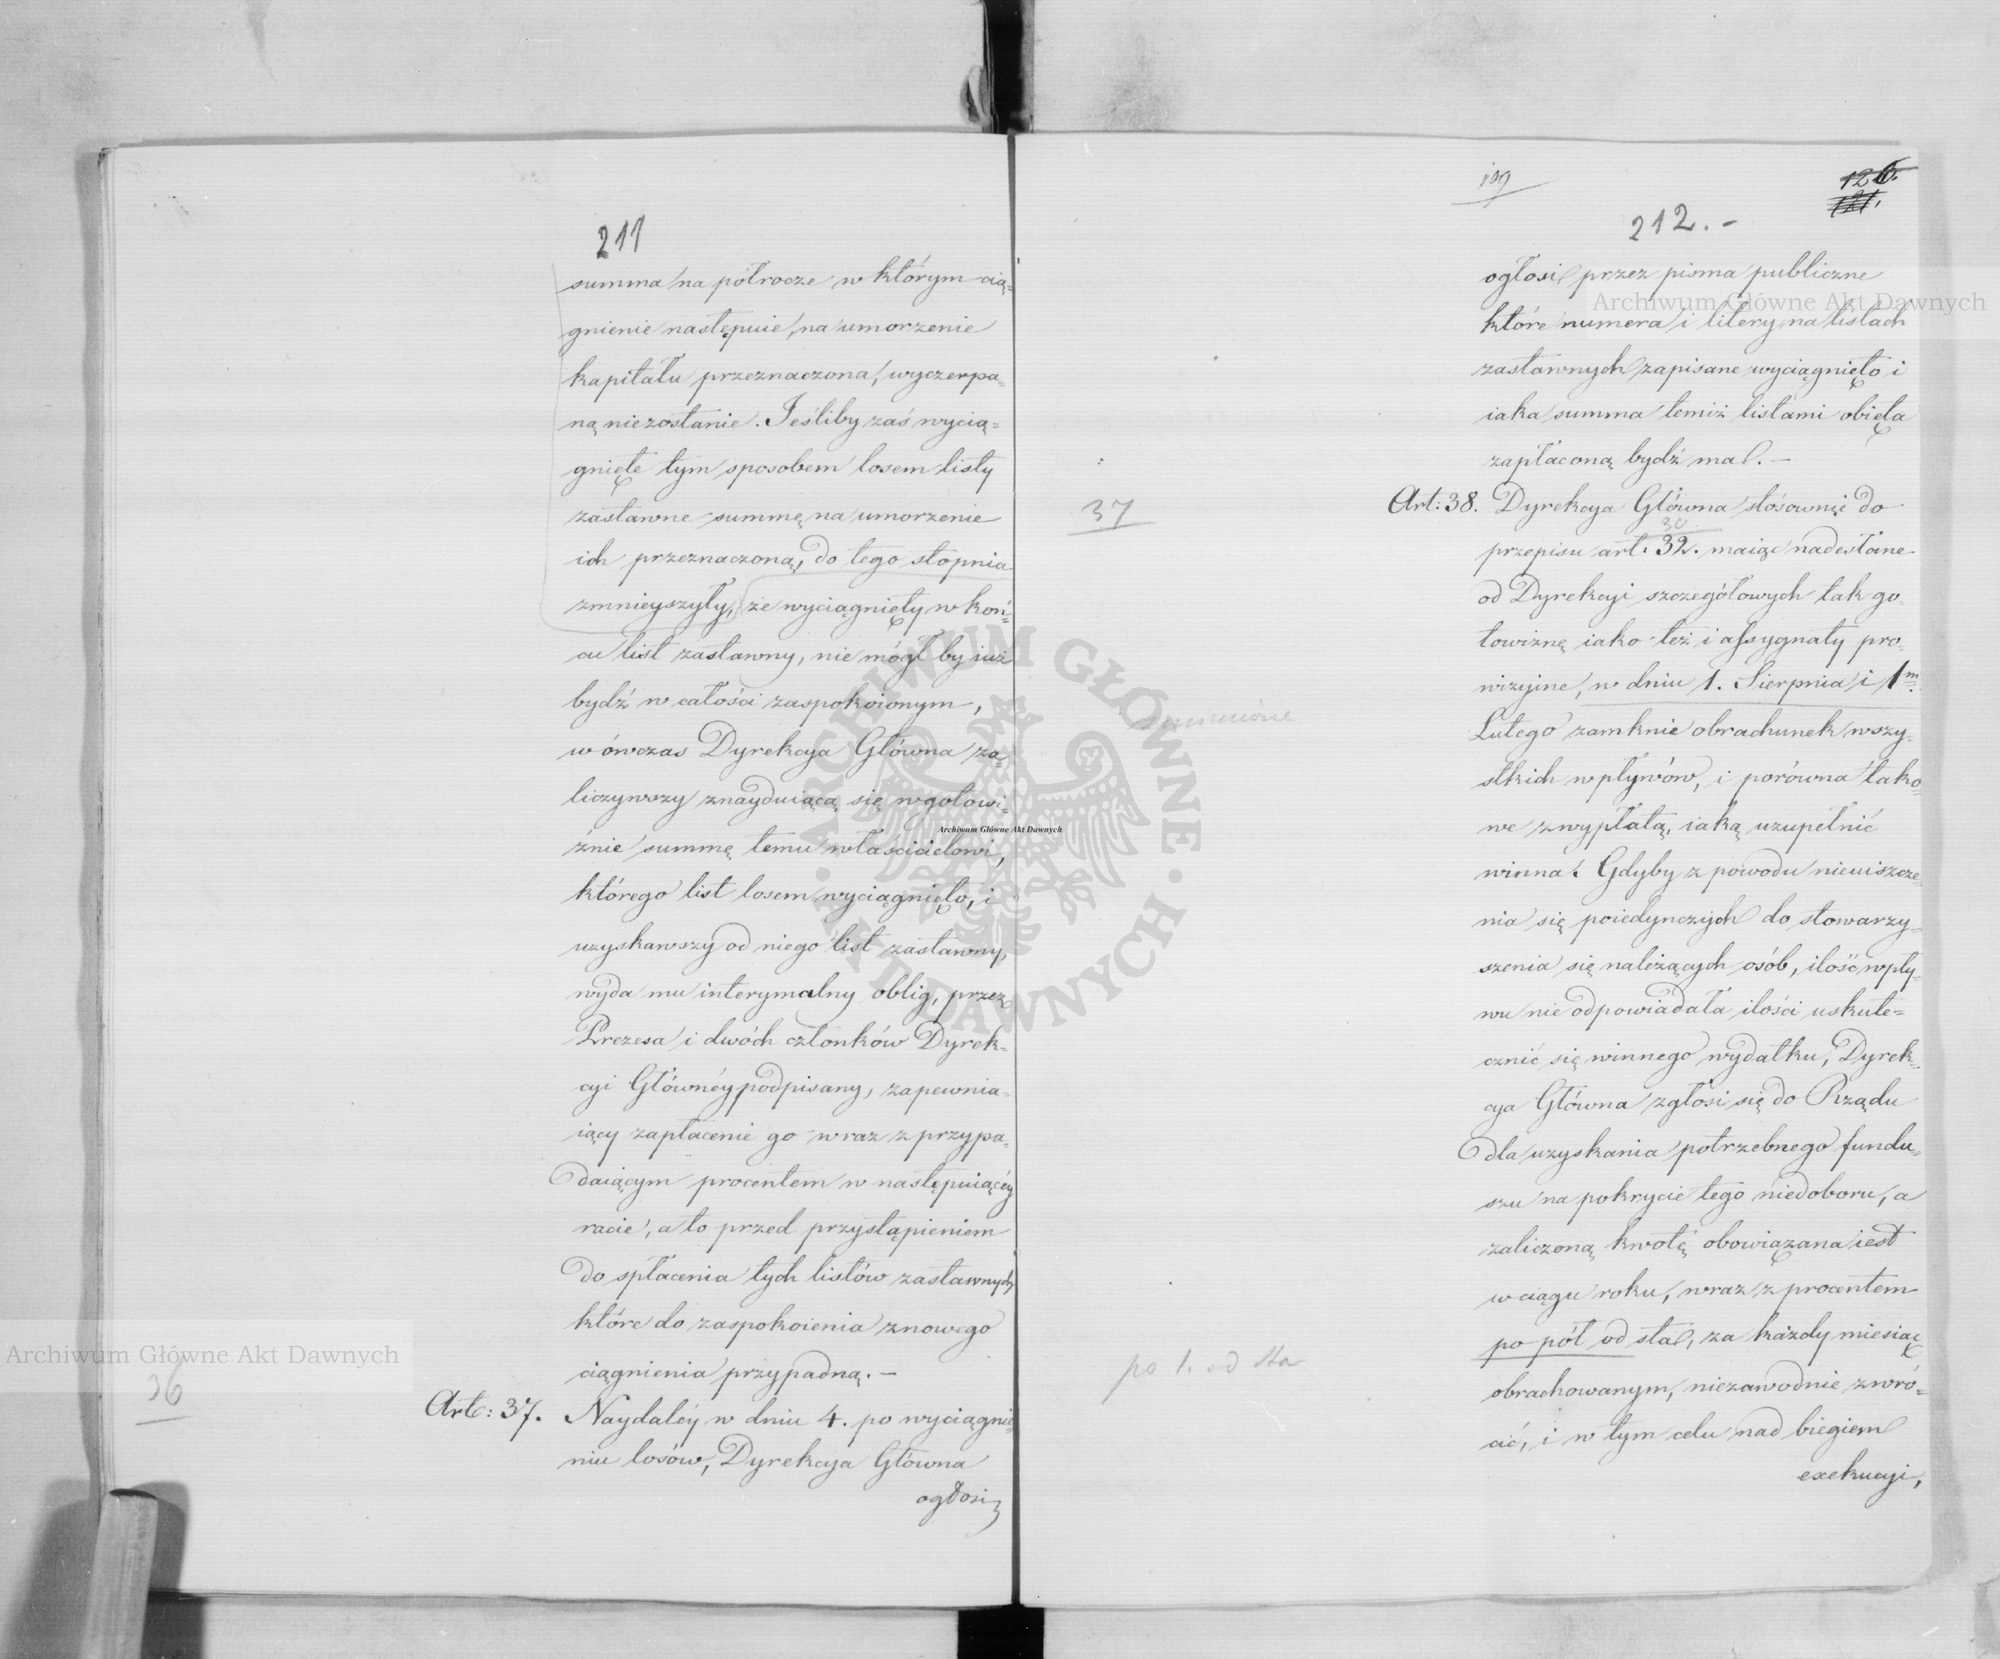 211
summa na półrocze w którym cią=
gnienie następuie, na umorzenie
kapitału przeznaczona, wyczerpa=
ną niezostanie. Jeśliby zaś wycią=
gnięte tym sposobem losem listy
zastawne summę na umorzenie
ich przeznaczoną, do tego stopnia
zmnieyszyły, że wyciągnięty w koń=
cu list zastawny, nie mógł by iuż
bydź w całości zaspokoionym,
wówczas Dyrekcya Główna za=
liczywszy znayduiącą się w gotowi=
źnie summę temu właścicielowi,
którego list losem wyciągnięto, i
uzyskawszy od niego list zastawny,
wyda mu interymalny oblig, przez
Prezesa i dwóch członków Dyrek=
cyi Głównéy podpisany, zapewnia=
iący zapłacenie go wraz z przypa=
daiącym procentem w następuiącéy
racie, a to przed przystąpieniem
do spłacenia tych listów zastawnych
które do zaspokoienia z nowego
ciągnienia przypadną. —
36
Art: 37. Naydaléy w dniu 4. po wyciągnie=
niu losów, Dyrekcya Główna
ogłosi
109
126.
121.
212. —
ogłosi przez pisma publiczne
które numera i litery na listach
zastawnych zapisane wyciągnięto i
iaka summa temiż listami obięta
zapłaconą bydź ma. —
37
Art: 38. Dyrekcya Główna stósownie do
30.
przepisu art. 32. maiąc nadesłane
od Dyrekcyi szczegółowych tak go
towiznę iako też i assygnaty pro=
wizyine, w dniu 1. Sierpnia i 1m
zmienione
Lutego zamknie obrachunek wszy=
stkich wpływów, i porówna tako=
we z wypłatą, iaką uzupełnić
winna. Gdyby z powodu nieuiszcze=
nia się poiedynczych do stowarzy=
szenia się należących osób, ilość wpły=
wu nie odpowiadała ilości uskute=
cznić się winnego wydatku, Dyrek=
cya Główna zgłosi się do Rządu
dla uzyskania potrzebnego fundu=
szu na pokrycie tego niedoboru, a
zaliczoną kwotę obowiązana iest
w ciągu roku, wraz z procentem
po pół od sta, za każdy miesiąc
po 1. od sta
obrachowanym, niezawodnie zwró=
cić, i w tym celu nad biegiem
exekucyi,
Archiwum Główne Akt Dawnych
Archiwum Główne Akt Dawnych
Archiwum Główne Akt Dawnych
ARCHIWUM GŁÓWNE · AKT DAWNYCH ·